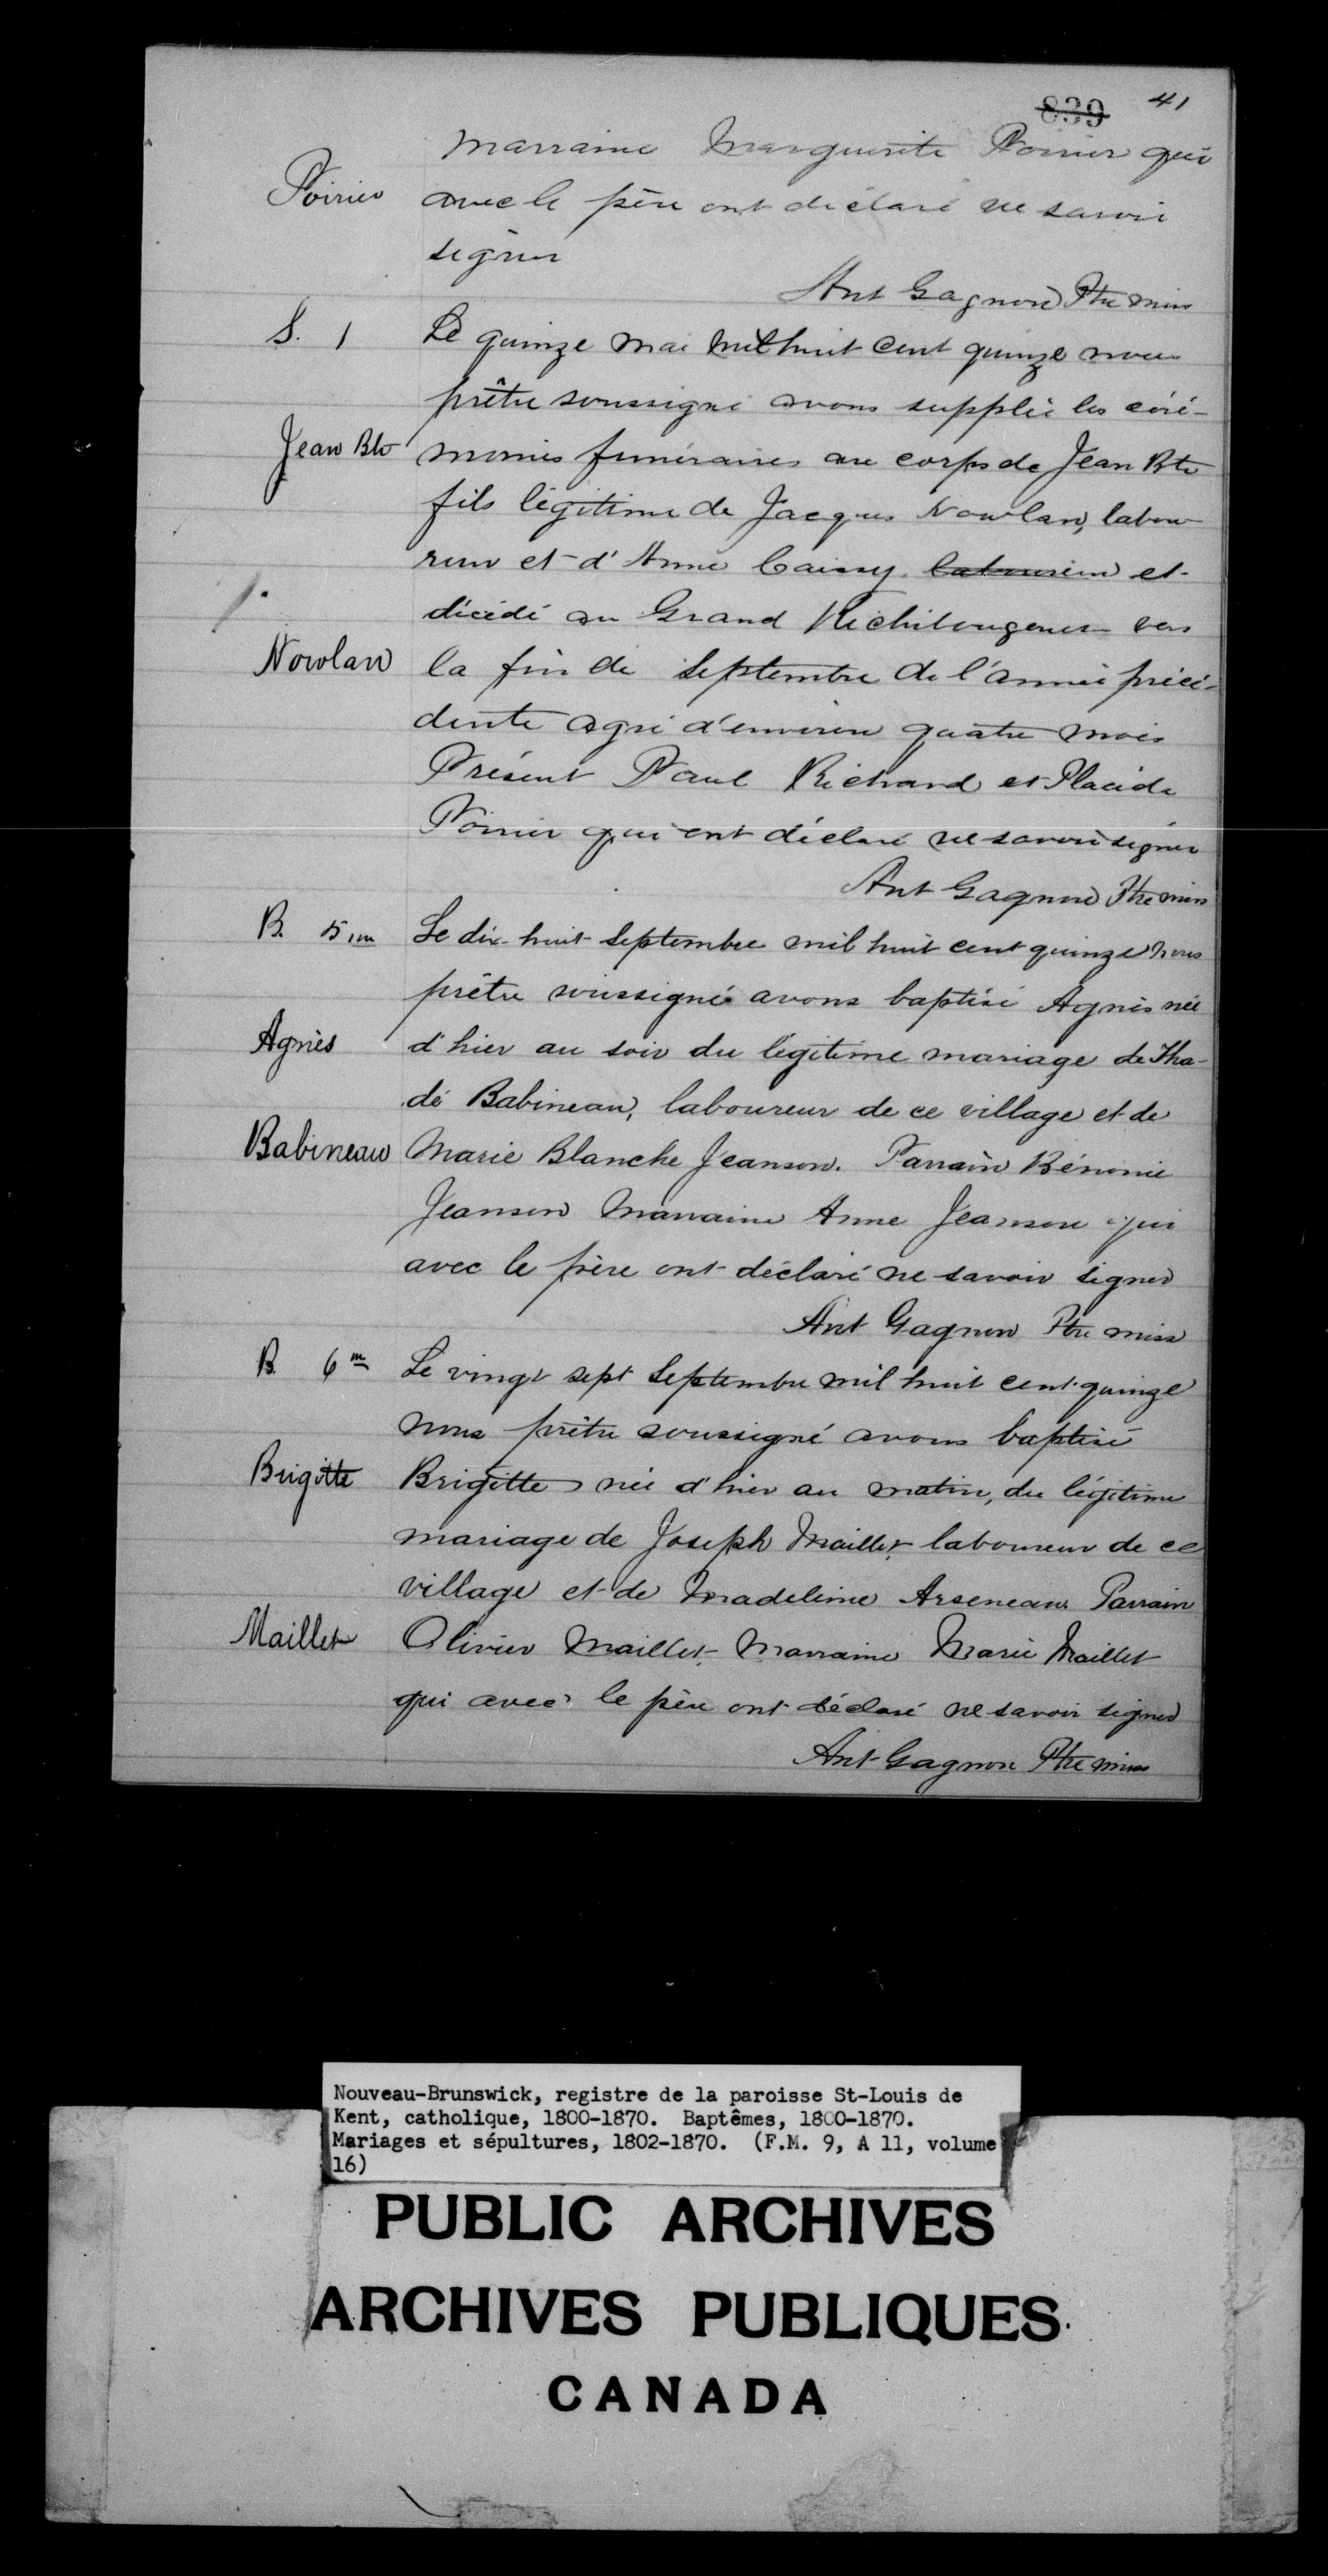 839 41
marraine Marguerite Poirier qui
Poirier avec le père ont déclaré ne savoir
signer
Ant Gagnon Ptre miss
S. 1 Le quinze mai mil huit cent quinze nous
prêtre soussigné avons supplié les céré-
Jean Bte monies funéraires au corps de Jean Bte
fils légitime de Jacques Nowlan, labou
reur et d'Anne Caissy, laboureur et
décédé au Grand Richibougouet vers
Nowlan la fin de Septembre de l'année précé-
dente agé d'environ quatre mois
Présent Paul Richard et Placide
Poirier qui ont déclaré ne savoir signer
Ant Gagnon Ptre miss
B. 5 m Le dix-huit Septembre mil huit cent quinze nous
prêtre soussigné avons baptisé Agnès née
Agnès d'hier au soir du légitime mariage de Tha-
dé Babineau, laboureur de ce village et de
Babineau Marie Blanche Jeanson. Parrain Bénonie
Jeanson Marraine Anne Jeanson qui
avec le père ont déclaré ne savoir signer
Ant Gagnon Ptre miss
B. 6 m Le vingt sept Septembre mil huit cent quinze
nous prêtre soussigné avons baptisé
Brigitte Brigitte née d'hier au matin, du légitime
mariage de Joseph Maillet laboureur de ce
village et de Madeleine Arseneau Parrain
Maillet Olivier Maillet Marraine Marie Maillet
qui avec le père ont déclaré ne savoir signer
Ant Gagnon Ptre miss
Nouveau-Brunswick, registre de la paroisse St-Louis de
Kent, catholique, 1800-1870. Baptêmes, 1800-1870.
Mariages et sépultures, 1802-1870. (F.M. 9, A 11, volume
16)
PUBLIC ARCHIVES
ARCHIVES PUBLIQUES
CANADA